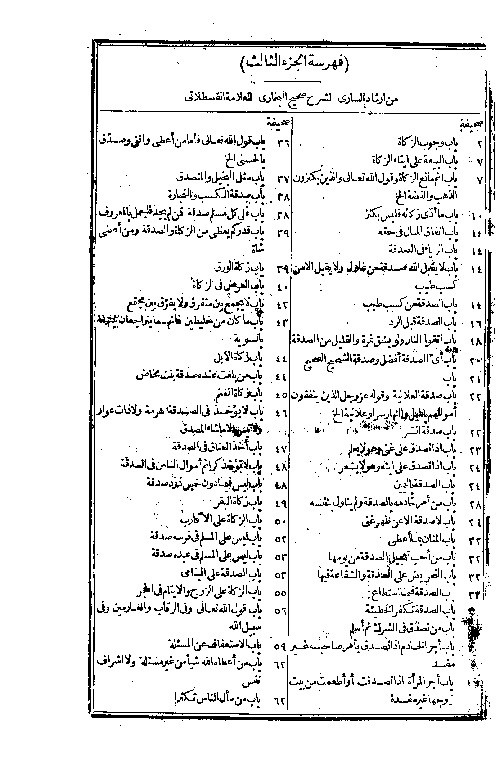 (فهرسة الجزء الثالث)
من ارشاد السارى لشرح صحيح البخارى للعلامة القسطلانى
صحيفة
٢ باب وجوب الزكاة
٧ باب البيعة على ايتاء الزكاة
٧ باب اثم مانع الزكاة وقول الله تعالى والذين يكنزون
الذهب والفضة الخ
١٠ باب ما أدّى زكاته فليس بكنز
١٤ باب انفاق المال فى حقه
١٤ باب الرياء فى الصدقة
١٤ باب لا يقبل الله صدقة من غلول ولا يقبل الا من
كسب طيب
١٤ باب الصدقة من كسب طيب
١٦ باب الصدقة قبل الرد
١٨ باب اتقوا النار ولو بشق تمرة والقليل من الصدقة
باب أىّ الصدقة أفضل وصدقة الشحيح الصحيح
٢١ باب
٢٢ باب صدقة العلانية وقوله عز وجل الذين ينفقون
أموالهم بالليل والنهار سرا وعلانية الخ
٢٢ باب صدقة السر
٢٣ باب اذا تصدق على غنى وهو لا يعلم
٢٤ باب اذا تصدق على ابنه وهو لا يشعر
٢٤ باب الصدقة باليمين
٢٨ باب من أمر خادمه بالصدقة ولم يناول بنفسه
باب لا صدقة الا عن ظهر غنى
باب المنان بما أعطى
٣٢ باب من أحب تعجيل الصدقة من يومها
٣٢ باب التحريض على الصدقة والشفاعة فيها
٣٣ باب الصدقة فيما استطاع
باب الصدقة تكفر الخطيئة
باب من تصدق فى الشرك ثم أسلم
باب أجر الخادم اذا تصدق بأمر صاحبه غير
مفسد
باب أجر المرأة اذا تصدقت أو أطعمت من بيت
زوجها غير مفسدة
صحيفة
٣٦ باب قول الله تعالى فأما من أعطى واتقى وصدق
بالحسنى الخ
٣٧ باب مثل البخيل والمتصدق
٣٨ باب صدقة الكسب والتجارة
٣٨ باب على كل مسلم صدقة فمن لم يجد فليعمل بالمعروف
٣٩ باب قدر كم يعطى من الزكاة والصدقة ومن أعطى
شاة
٣٩ باب زكاة الورق
٤٠ باب العرض فى الزكاة
٤٢ باب لا يجمع بين متفرق ولا يفرق بين مجتمع
٤٣ باب ما كان من خليطين فانهما يتراجعان بينهما
بالسوية
٤٤ باب زكاة الابل
٤٤ باب من بلغت عنده صدقة بنت مخاض
٤٥ باب زكاة الغنم
٤٦ باب لا يؤخذ فى الصدقة هرمة ولا ذات عوار
ولا تيس الا ما شاء المصدق
٤٧ باب أخذ العناق فى الصدقة
٤٨ باب لا تؤخذ كرائم أموال الناس فى الصدقة
٤٨ باب ليس فيما دون خمس ذود صدقة
٤٩ باب زكاة البقر
٥٠ باب الزكاة على الاقارب
٥٢ باب ليس على المسلم فى فرسه صدقة
٥٣ باب ليس على المسلم فى عبده صدقة
٥٣ باب الصدقة على اليتامى
٥٥ باب الزكاة على الزوج والايتام فى الحجر
٥٦ باب قول الله تعالى وفى الرقاب والغارمين وفى
سبيل الله
٥٩ باب الاستعفاف عن المسئلة
٦٢ باب من أعطاه الله شيأ من غير مسئلة ولا اشراف
نفس
٦٢ باب من سأل الناس تكثرا